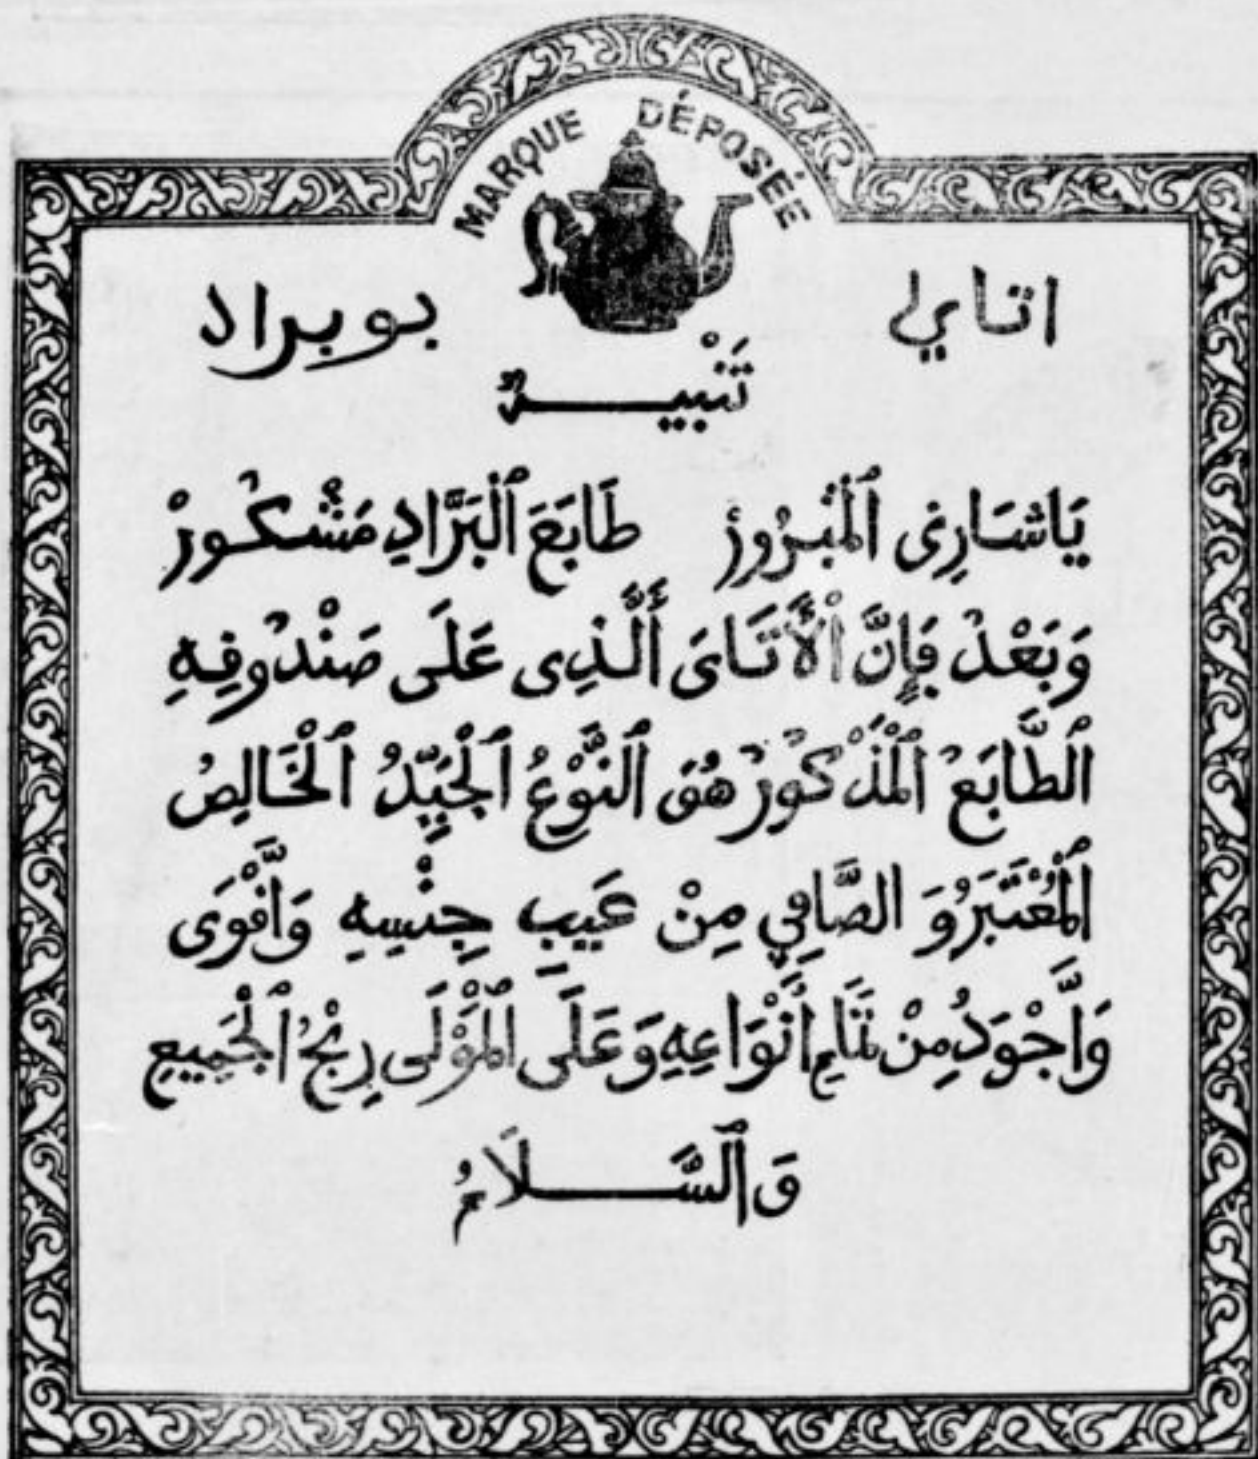 MARQUE DÉPOSÉE
اتاي بوبراد
تَنْبِيـــــهٌ
يَاشَارِى ٱلْمَبْرُورْ طَابَعَ ٱلْبَرَّادِ مَشْكُورْ
وَبَعْدُ فَإِنَّ ٱلْأَتَاىَ ٱلَّذِى عَلَى صَنْدُوقِهِ
ٱلطَّابَعُ ٱلْمَذْكُورُ هُوَ ٱلنَّوْعُ ٱلْجَيِّدُ ٱلْخَالِصُ
ٱلْمُعْتَبَرُ وَ الصَّافِي مِنْ عَيْبِ جِنْسِهِ وَأَقْوَى
وَأَجْوَدُ مِنْ أَنْوَاعِهِ وَعَلَى ٱلْمَوْلَى رِبْحُ ٱلْجَمِيعِ
وَ ٱلسَّـــــلَامُ